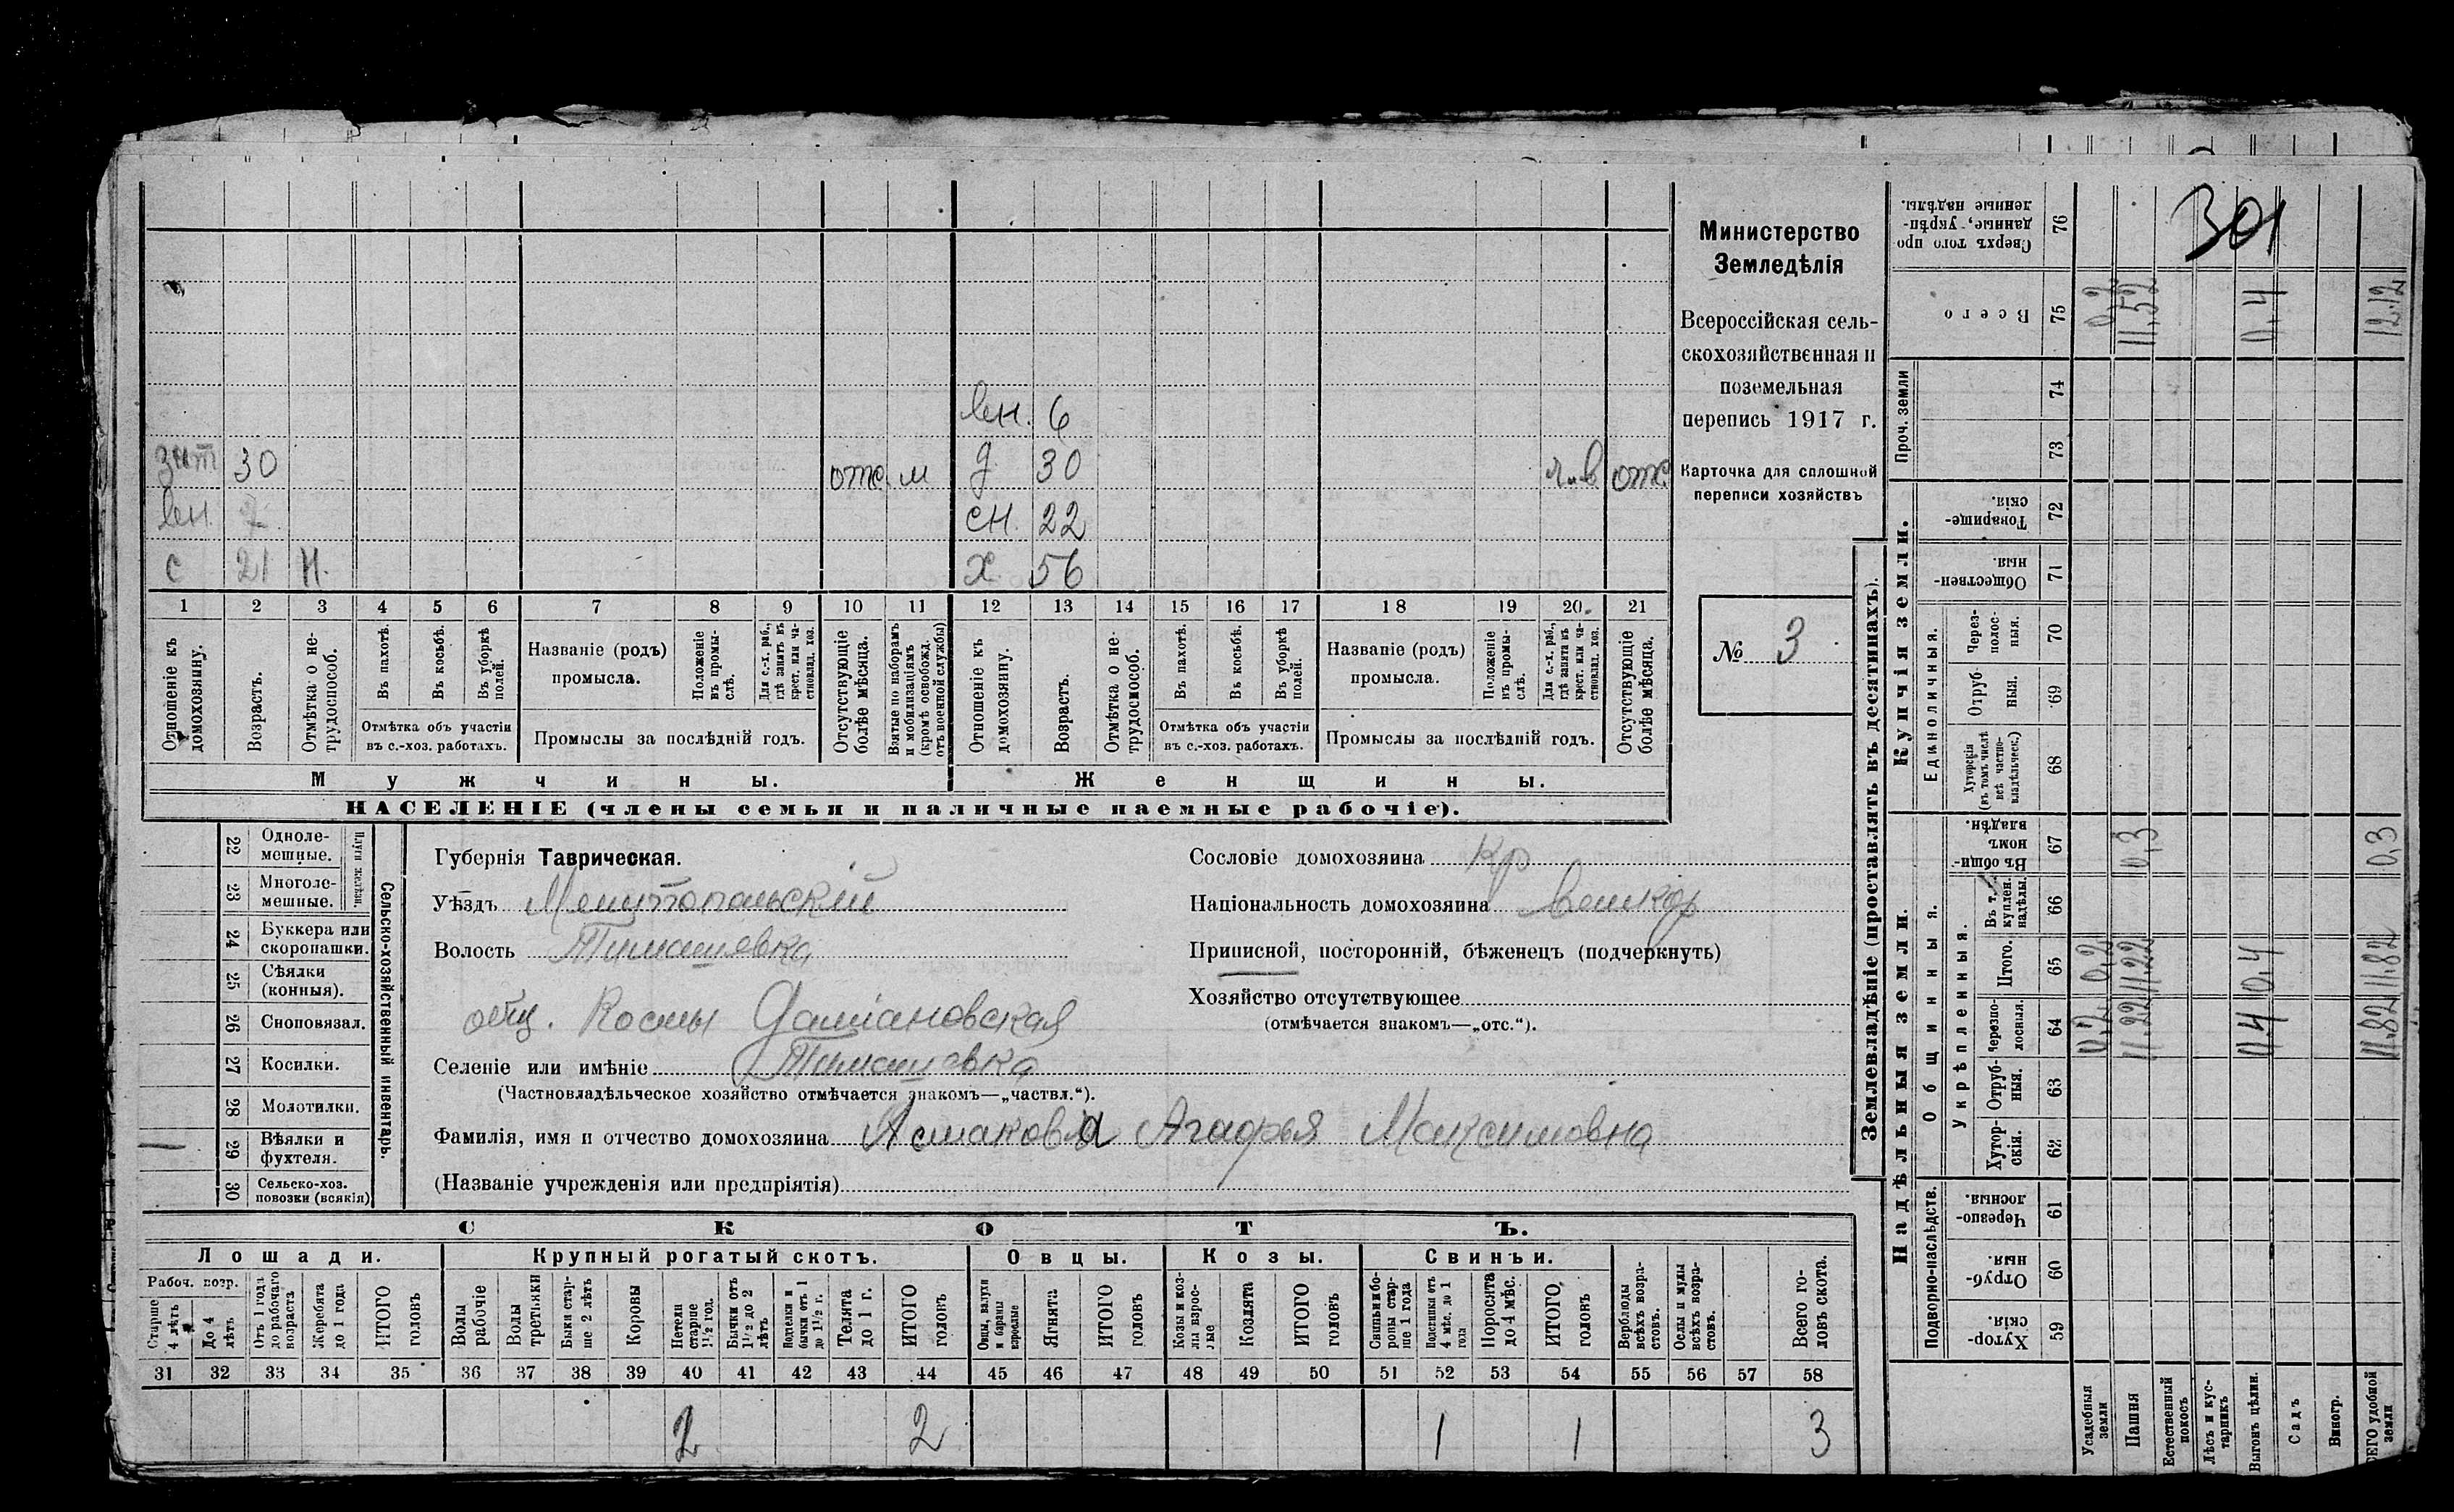 301
Министерство
Земледѣлія
Всероссійская сель-
скохозяйственная и
поземельная
перепись 1917 г.
Карточка для сплошной
переписи хозяйствъ
№ 3
вн. 6
зят 30 отс. м д 30 отс.
вн. 7 сн. 22
с 21 н. х 56
1 2 3 4 5 6 7 8 9 10 11 12 13 14 15 16 17 18 19 20 21
Отношеніе къ домохозяину.
Возрастъ.
Отмѣтка о не-трудоспособ.
Въ пахотѣ.
Въ косьбѣ.
Въ уборкѣ полей.
Отмѣтка объ участіи
въ с.-хоз. работахъ.
Названіе (родъ)
промысла.
Положеніе въ промы-слѣ.
Для с.-х. раб., гдѣ занятъ въ крест. или ча-стновлад. хоз.
Промыслы за послѣдній годъ.
Отсутствующіе болѣе мѣсяца.
Взятые по наборамъ и мобилизаціямъ (кромѣ освобожд. отъ военной службы)
Отношеніе къ домохозяину.
Возрастъ.
Отмѣтка о не-трудоспособ.
Въ пахотѣ.
Въ косьбѣ.
Въ уборкѣ полей.
Отмѣтка объ участіи
въ с.-хоз. работахъ.
Названіе (родъ)
промысла.
Положеніе въ промы-слѣ.
Для с.-х. раб., гдѣ занята въ крест. или ча-стновлад. хоз.
Промыслы за послѣдній годъ.
Отсутствующіе болѣе мѣсяца.
Мужчины. Женщины.
НАСЕЛЕНІЕ (члены семьи и наличные наемные рабочіе).
22 Одноле-мешные.
23 Многоле-мешные.
Плуги желѣзн.
24 Буккера или скоропашки.
25 Сѣялки (конныя).
26 Сноповязал.
27 Косилки.
28 Молотилки.
29 Вѣялки и фухтеля.
30 Сельско-хоз. повозки (всякія)
Сельско-хозяйственный инвентарь.
Губернія Таврическая.
Уѣздъ Мелитопольскій
Волость Тимашевка
общ. Космы Даміановская
Селеніе или имѣніе Тимашевка
(Частновладѣльческое хозяйство отмѣчается знакомъ—„частвл.“).
Фамилія, имя и отчество домохозяина Асмакова Агафья Максимовна
(Названіе учрежденія или предпріятія)
Сословіе домохозяина кр
Національность домохозяина великор
Приписной, посторонній, бѣженецъ (подчеркнуть)
Хозяйство отсутствующее
(отмѣчается знакомъ—„отс.“).
СКОТЪ.
Лошади. Крупный рогатый скотъ. Овцы. Козы. Свиньи.
Рабоч. возр.
Старше 4 лѣтъ
До 4 лѣтъ
Отъ 1 года до рабочаго возраста
Жеребята до 1 года
ИТОГО головъ
Волы рабочіе
Волы третьяки
Быки стар-ше 2 лѣтъ
Коровы
Нетели старше 1½ год.
Бычки отъ 1½ до 2 лѣтъ
Подтелки и бычки отъ 1 до 1½ г.
Телята до 1 г.
ИТОГО головъ
Овцы, валухи и бараны взрослые
Ягнята
ИТОГО головъ
Козы и коз-лы взрос-лые
Козлята
ИТОГО головъ
Свиньи и бо-ровы стар-ше 1 года
Подсвинки отъ 4 мѣс. до 1 года
Поросята до 4 мѣс.
ИТОГО головъ
Верблюды всѣхъ возра-стовъ.
Ослы и мулы всѣхъ возра-стовъ.
Всего го-ловъ скота.
31 32 33 34 35 36 37 38 39 40 41 42 43 44 45 46 47 48 49 50 51 52 53 54 55 56 57 58
2 2 1 1 3
Землевладѣніе (проставлять въ десятинахъ).
Надѣльныя земли.
Купчія земли.
Проч. земли
Подворно-наслѣдств.
Общинныя.
Укрѣпленныя.
Единоличныя.
Хутор-скія. 59
Отруб-ныя. 60
Черезпо-лосныя. 61
Хутор-скія. 62
Отруб-ныя. 63
Черезпо-лосныя. 64
Итого. 65
Въ т. ч. куплен. надѣлы. 66
Въ общин-номъ владѣн. 67
Хуторскія (въ томъ числѣ всѣ частно-владѣльческ.) 68
Отруб-ныя. 69
Через-полос-ныя. 70
Обществен-ныя. 71
Товарище-скія. 72
73
74
Всего 75
Сверхъ того про-данные, укрѣп-ленные надѣлы. 76
Усадебныя земли 0,2 0,2 0,2
Пашня 11,22 11,22 0,3 11,52
Естественный покосъ
Лѣсъ и кус-тарникъ
Выгонъ цѣлин. 0,4 0,4 0,4
Садъ
Виногр.
ВСЕГО удобной земли 11,82 11,82 0,3 12,12